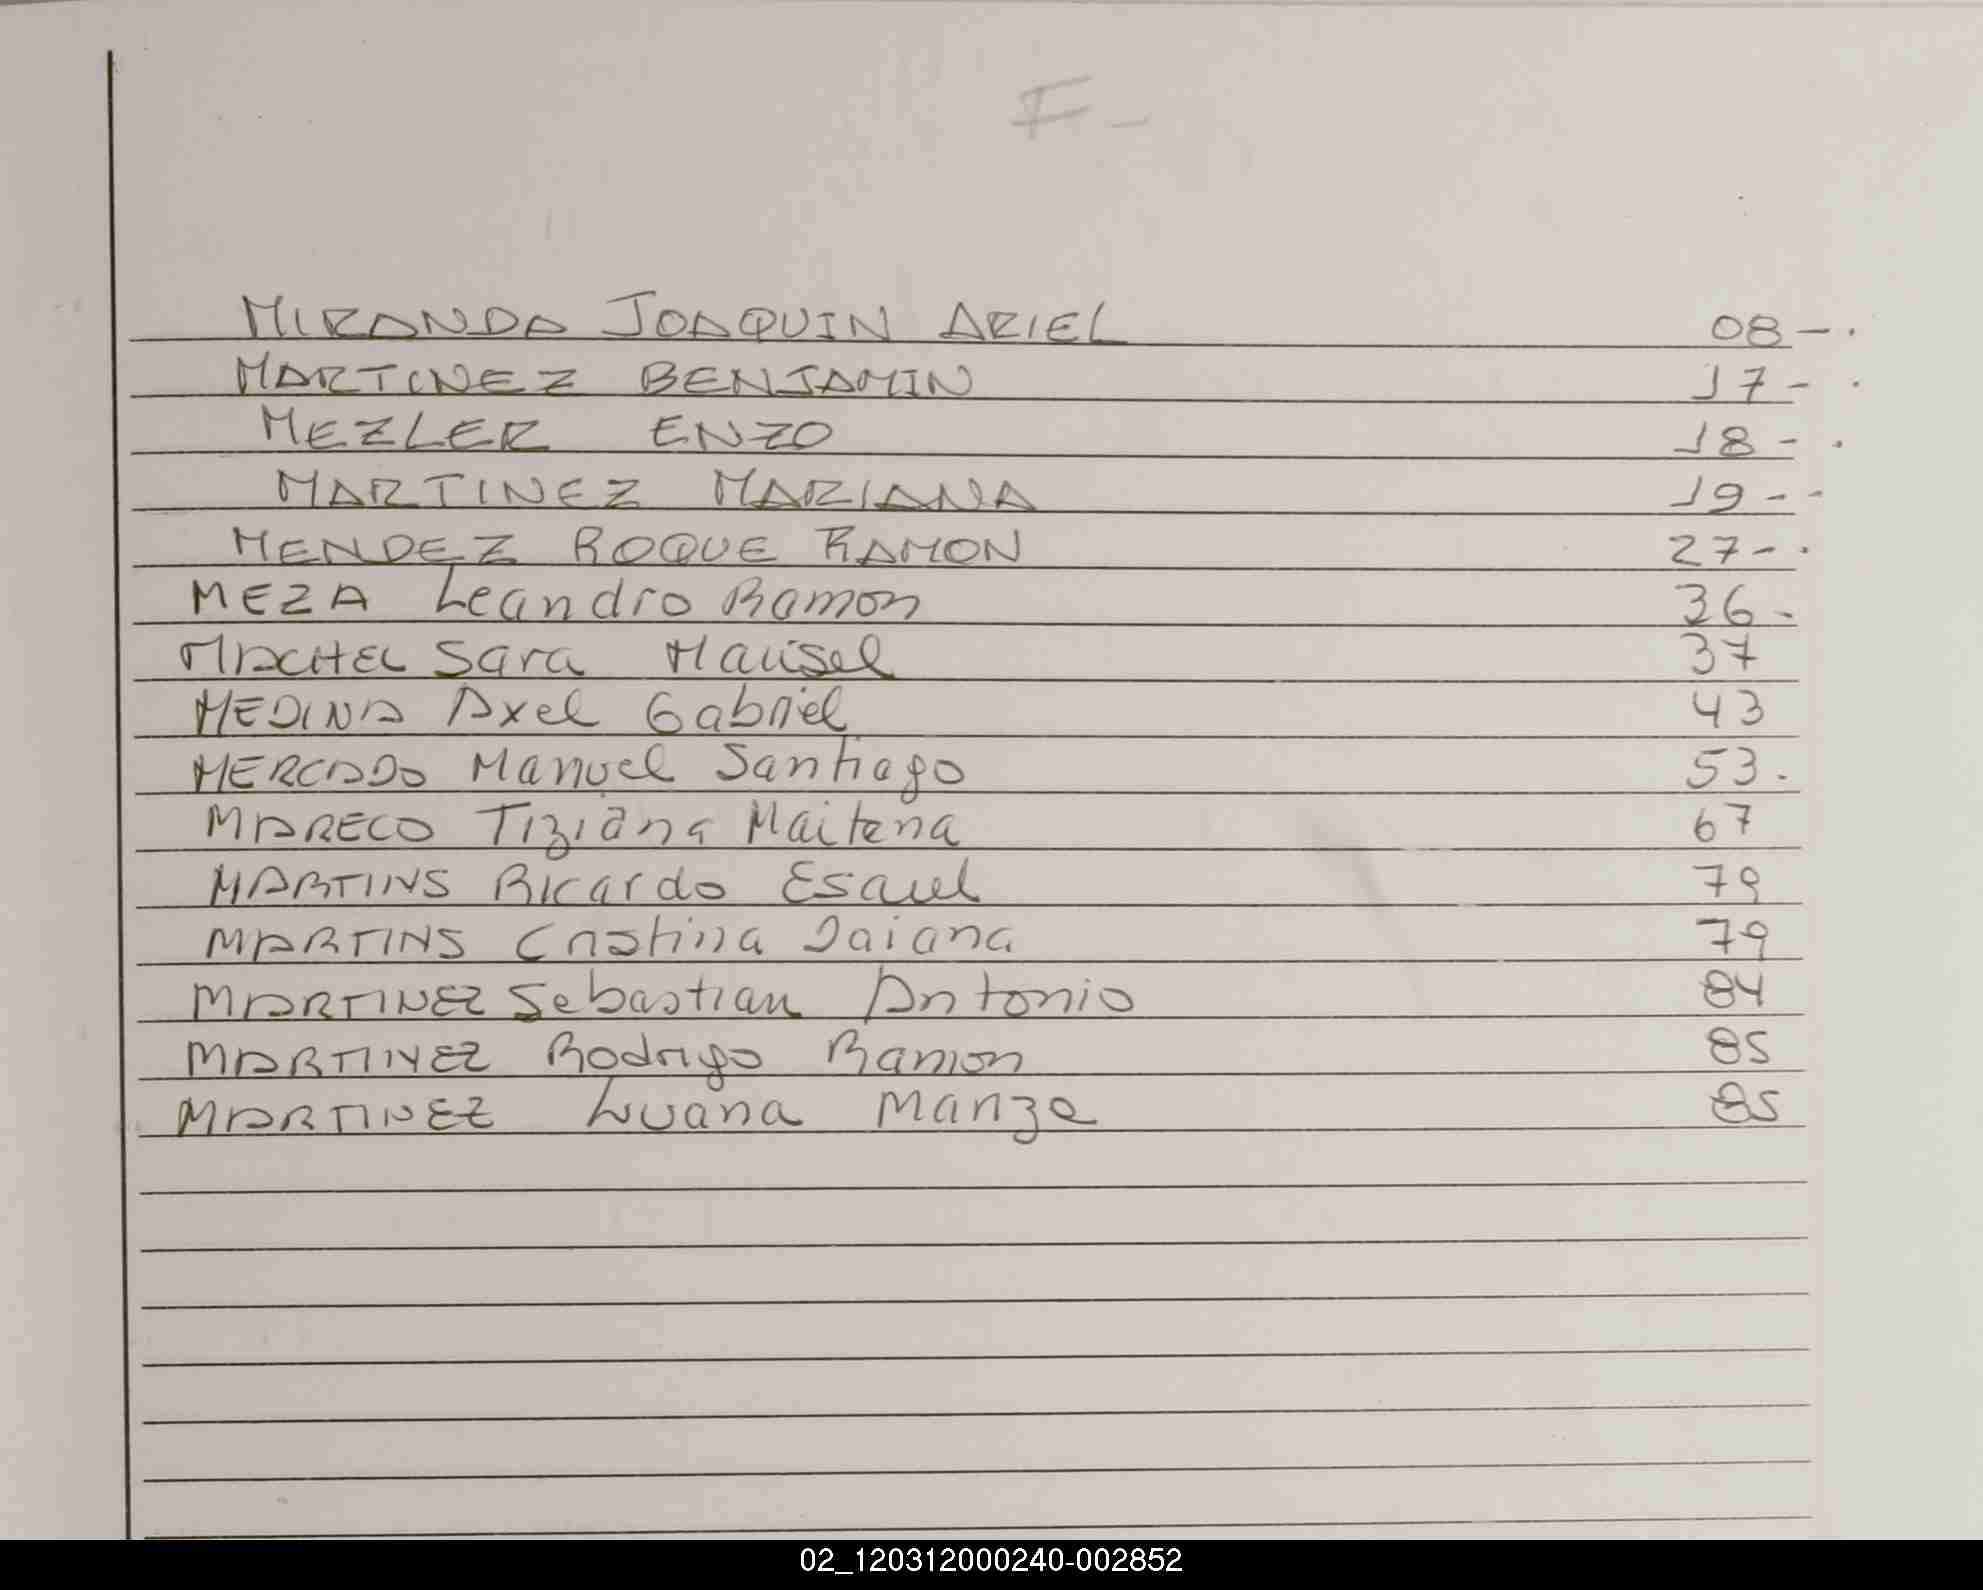 F-
MIRANDA JOAQUIN ARIEL 08-.
MARTINEZ BENJAMIN 17-.
MEZLER ENZO 18-.
MARTINEZ MARIANA 19--
MENDEZ ROQUE RAMON 27-.
MEZA Leandro Ramon 36.
MACHEL Sara Marisel 37
MEDINA Axel Gabriel 43
MERCADO Manuel Santiago 53.
MARECO Tiziana Maitena 67
MARTINS Ricardo Esaul 79
MARTINS Cristina Daiana 79
MARTINEZ Sebastian Antonio 84
MARTINEZ Rodrigo Ramon 85
MARTINEZ Luana 85
02_120312000240-002852